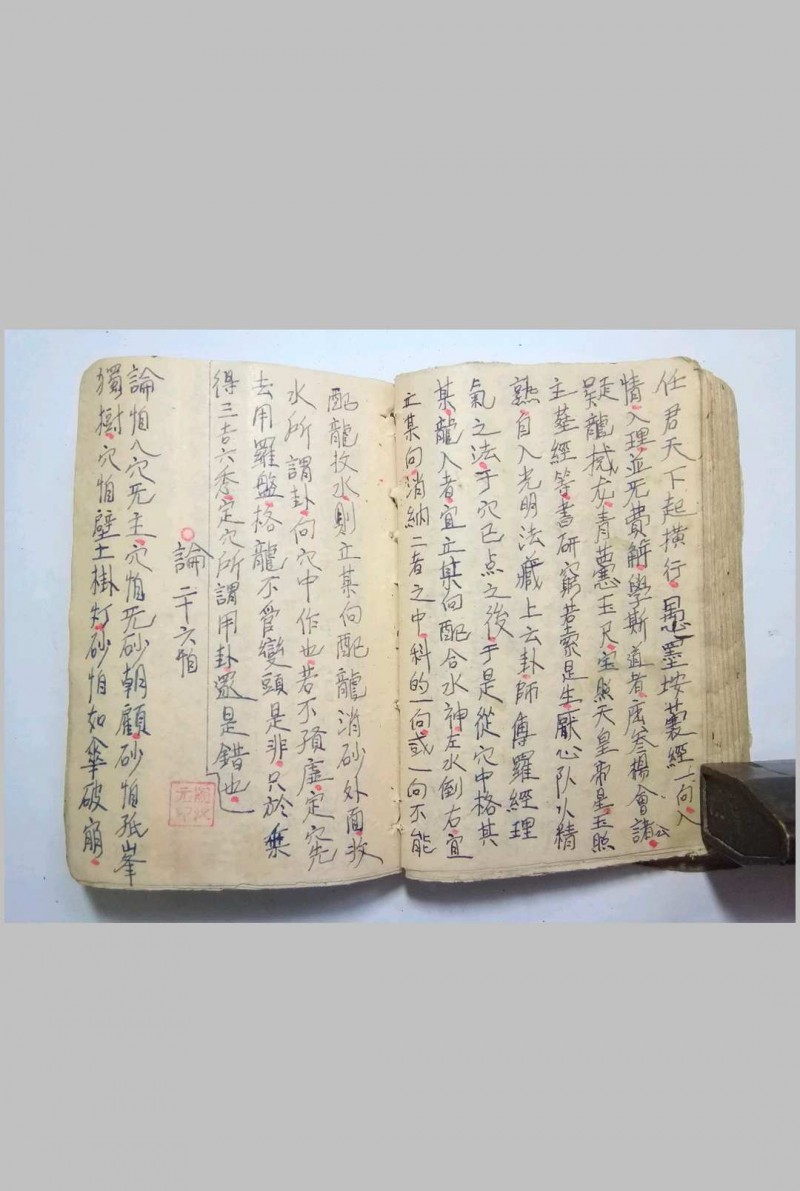 任君天下起橫行愚墨按囊經一向入
情入理並旡費解學斯道者唐參楊會諸公
疑龍撼龙青囊玉尺宝照天皇帝是玉照
主葬經等書研窮若索是生厭心队以精
熟自入光明法藏上云卦師傅羅經理
氣之法于穴已点之後于是從穴中格其
某龍入者宜立某向配合水神左水倒右宜
立某向消納二者之中科的一向或一向不能
配龍技水則立某向配龍消砂外面收
水所謂卦向穴中作也若不預虛定穴先
去用羅盤格龍不管變頭是非只於乘
得三吉六秀定穴所謂用卦還是錯也
論二十六怕
論怕入穴旡主穴怕旡砂朝顧砂怕孤峯
獨樹穴怕壁土掛灯砂怕如傘破崩